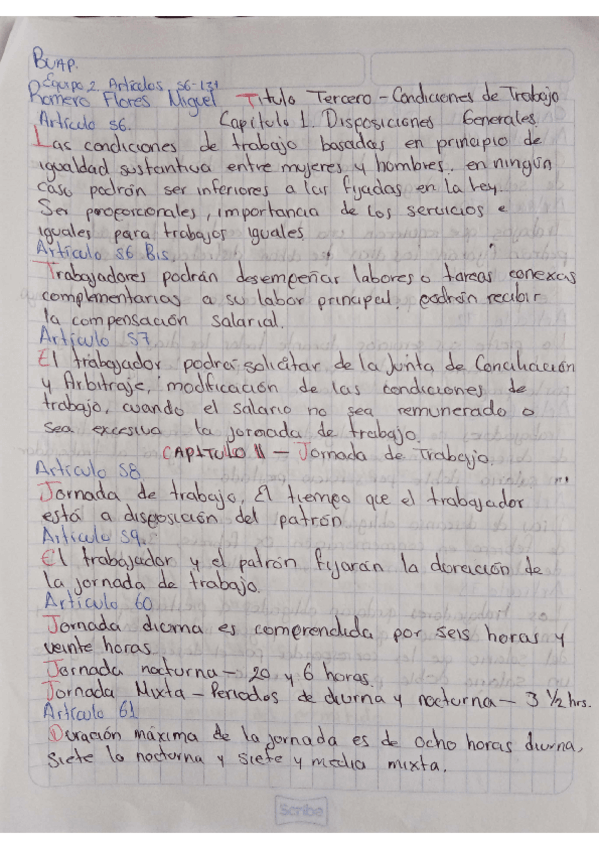 BUAP.
Equipo 2 Artículos 56-131
Romero Flores Miguel Titulo Tercero - Condiciones de Trabajo
Artículo 56. Capítulo 1. Disposiciones Generales
Las condiciones de trabajo basadas en principio de
igualdad sustantiva entre mujeres y hombres. en ningún
caso podrán ser inferiores a las fijadas en la ley.
Ser proporcionales, importancia de los servicios e
iguales para trabajos iguales
Artículo 56 Bis
Trabajadores podrán desempeñar labores o tareas conexas
complementarias a su labor principal. podrán recibir
la compensación salarial.
Artículo 57
El trabajador podrá solicitar de la Junta de Conciliación
y Arbitraje, modificación de las condiciones de
trabajo, cuando el salario no sea remunerado o
sea excesiva la jornada de trabajo.
CAPITULO II - Jornada de Trabajo.
Artículo 58
Jornada de trabajo. El tiempo que el trabajador
está a disposición del patrón
Artículo 59.
El trabajador y el patrón fijarán la duración de
la jornada de trabajo.
Artículo 60
Jornada diurna es comprendida por seis horas y
veinte horas.
Jornada nocturna - 20 y 6 horas.
Jornada Mixta - Periodos de diurna y nocturna - 3 ½ hrs.
Artículo 61
Duración máxima de la jornada es de ocho horas diurna,
siete la nocturna y siete y media mixta.
Scribe